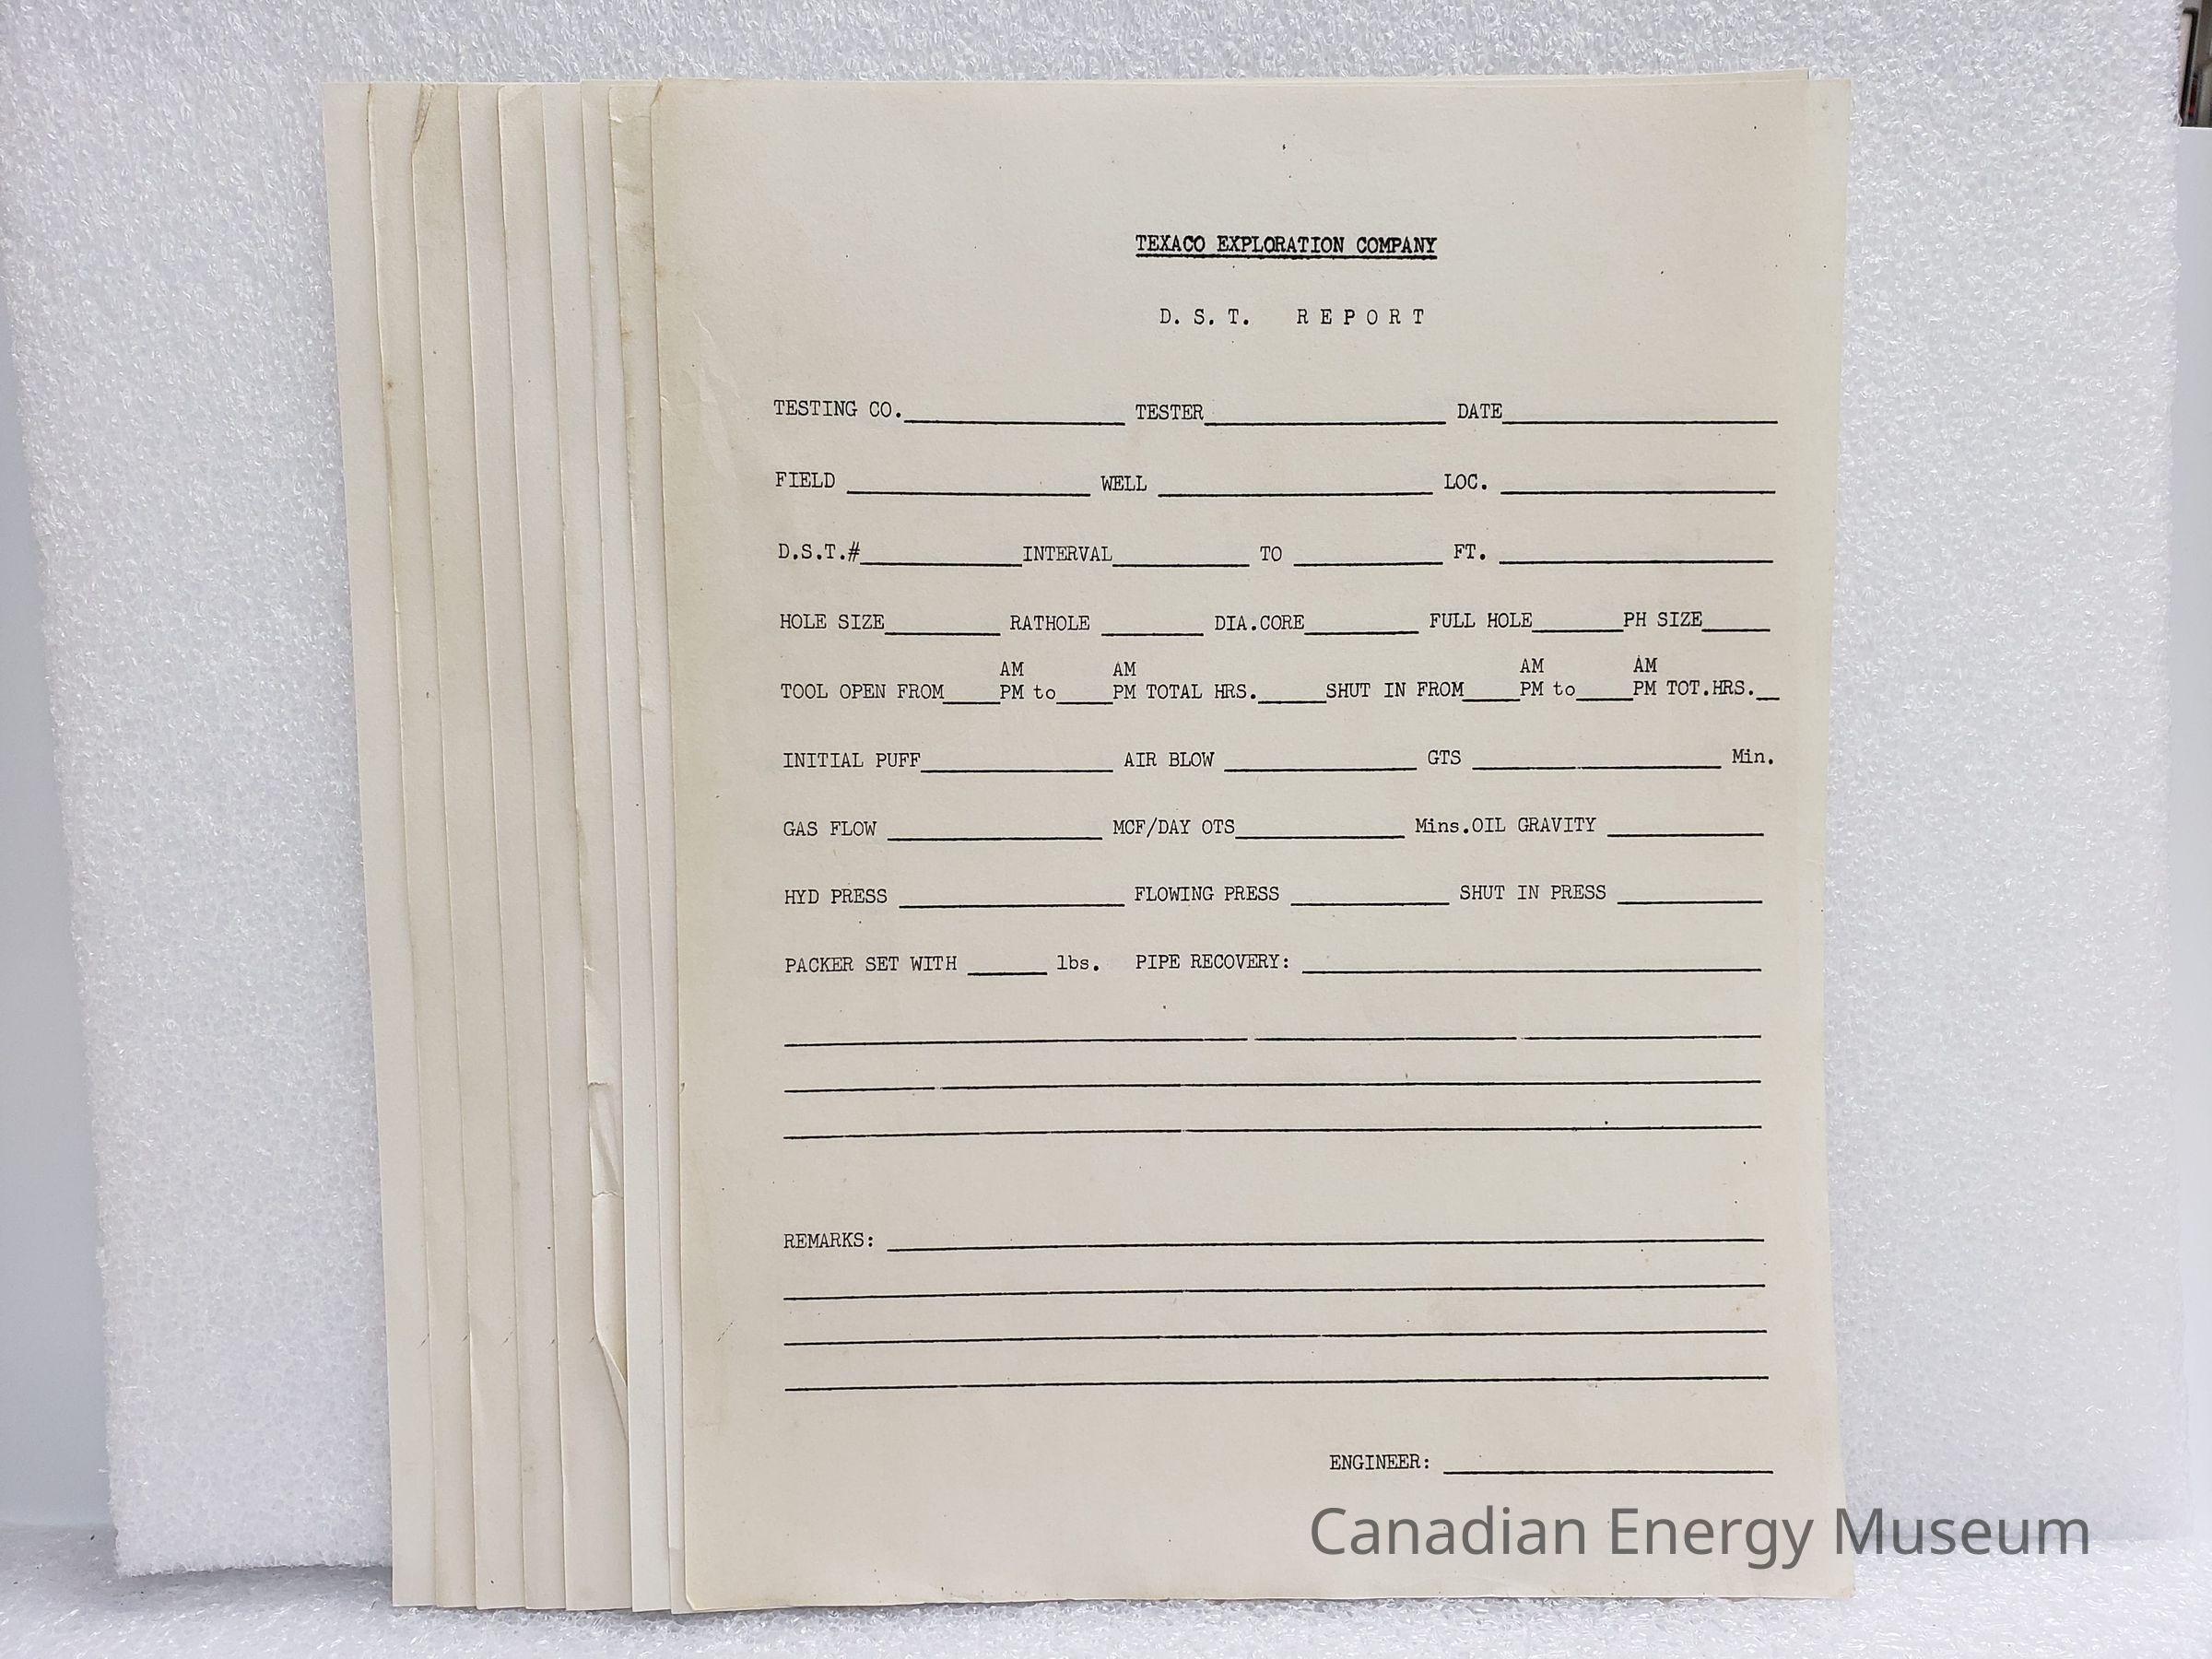 TEXACO EXPLORATION COMPANY
D. S. T. REPORT
TESTING CO.____________ TESTER____________ DATE____________
FIELD ____________ WELL ____________ LOC. ____________
D.S.T.#____________INTERVAL____________ TO ____________ FT. ____________
HOLE SIZE________ RATHOLE ________ DIA.CORE________ FULL HOLE________PH SIZE______
AM AM AM AM
TOOL OPEN FROM____PM to____PM TOTAL HRS.____SHUT IN FROM____PM to____PM TOT.HRS.__
INITIAL PUFF____________ AIR BLOW ____________ GTS ____________ Min.
GAS FLOW ____________ MCF/DAY OTS____________ Mins.OIL GRAVITY ____________
HYD PRESS ____________ FLOWING PRESS ____________ SHUT IN PRESS ____________
PACKER SET WITH ______ lbs. PIPE RECOVERY: ____________
REMARKS: ____________
ENGINEER: ____________
Canadian Energy Museum